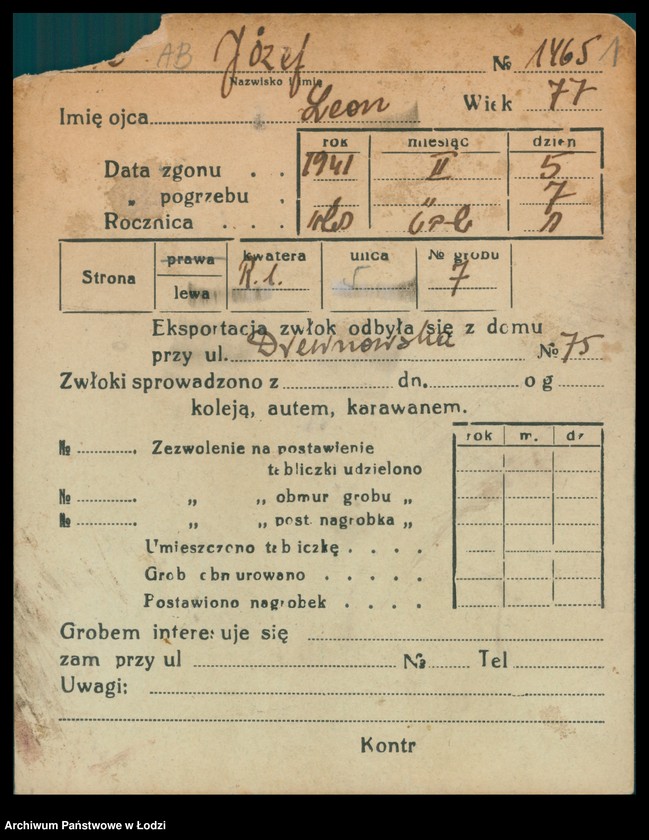 AB Józef № 1465 1
Nazwisko i imię
Imię ojca Leon Wiek 77
rok miesiąc dzień
Data zgonu . . 1941 II 5
„ pogrzebu . „ „ 7
Rocznica . . .
Strona prawa kwatera ulica № grobu
lewa K. l. 7
Eksportacja zwłok odbyła się z domu
przy ul. Drewnowska № 75
Zwłoki sprowadzono z dn. o g
koleją, autem, karawanem.
rok m. dz
№ . Zezwolenie na postawienie
tabliczki udzielono
№ . „ „ obmur grobu „
№ . „ „ post. nagrobka „
Umieszczono tabliczkę . . . .
Grob obmurowano . . . . .
Postawiono nagrobek . . . .
Grobem interesuje się
zam przy ul № Tel
Uwagi:
Kontr
Archiwum Państwowe w Łodzi